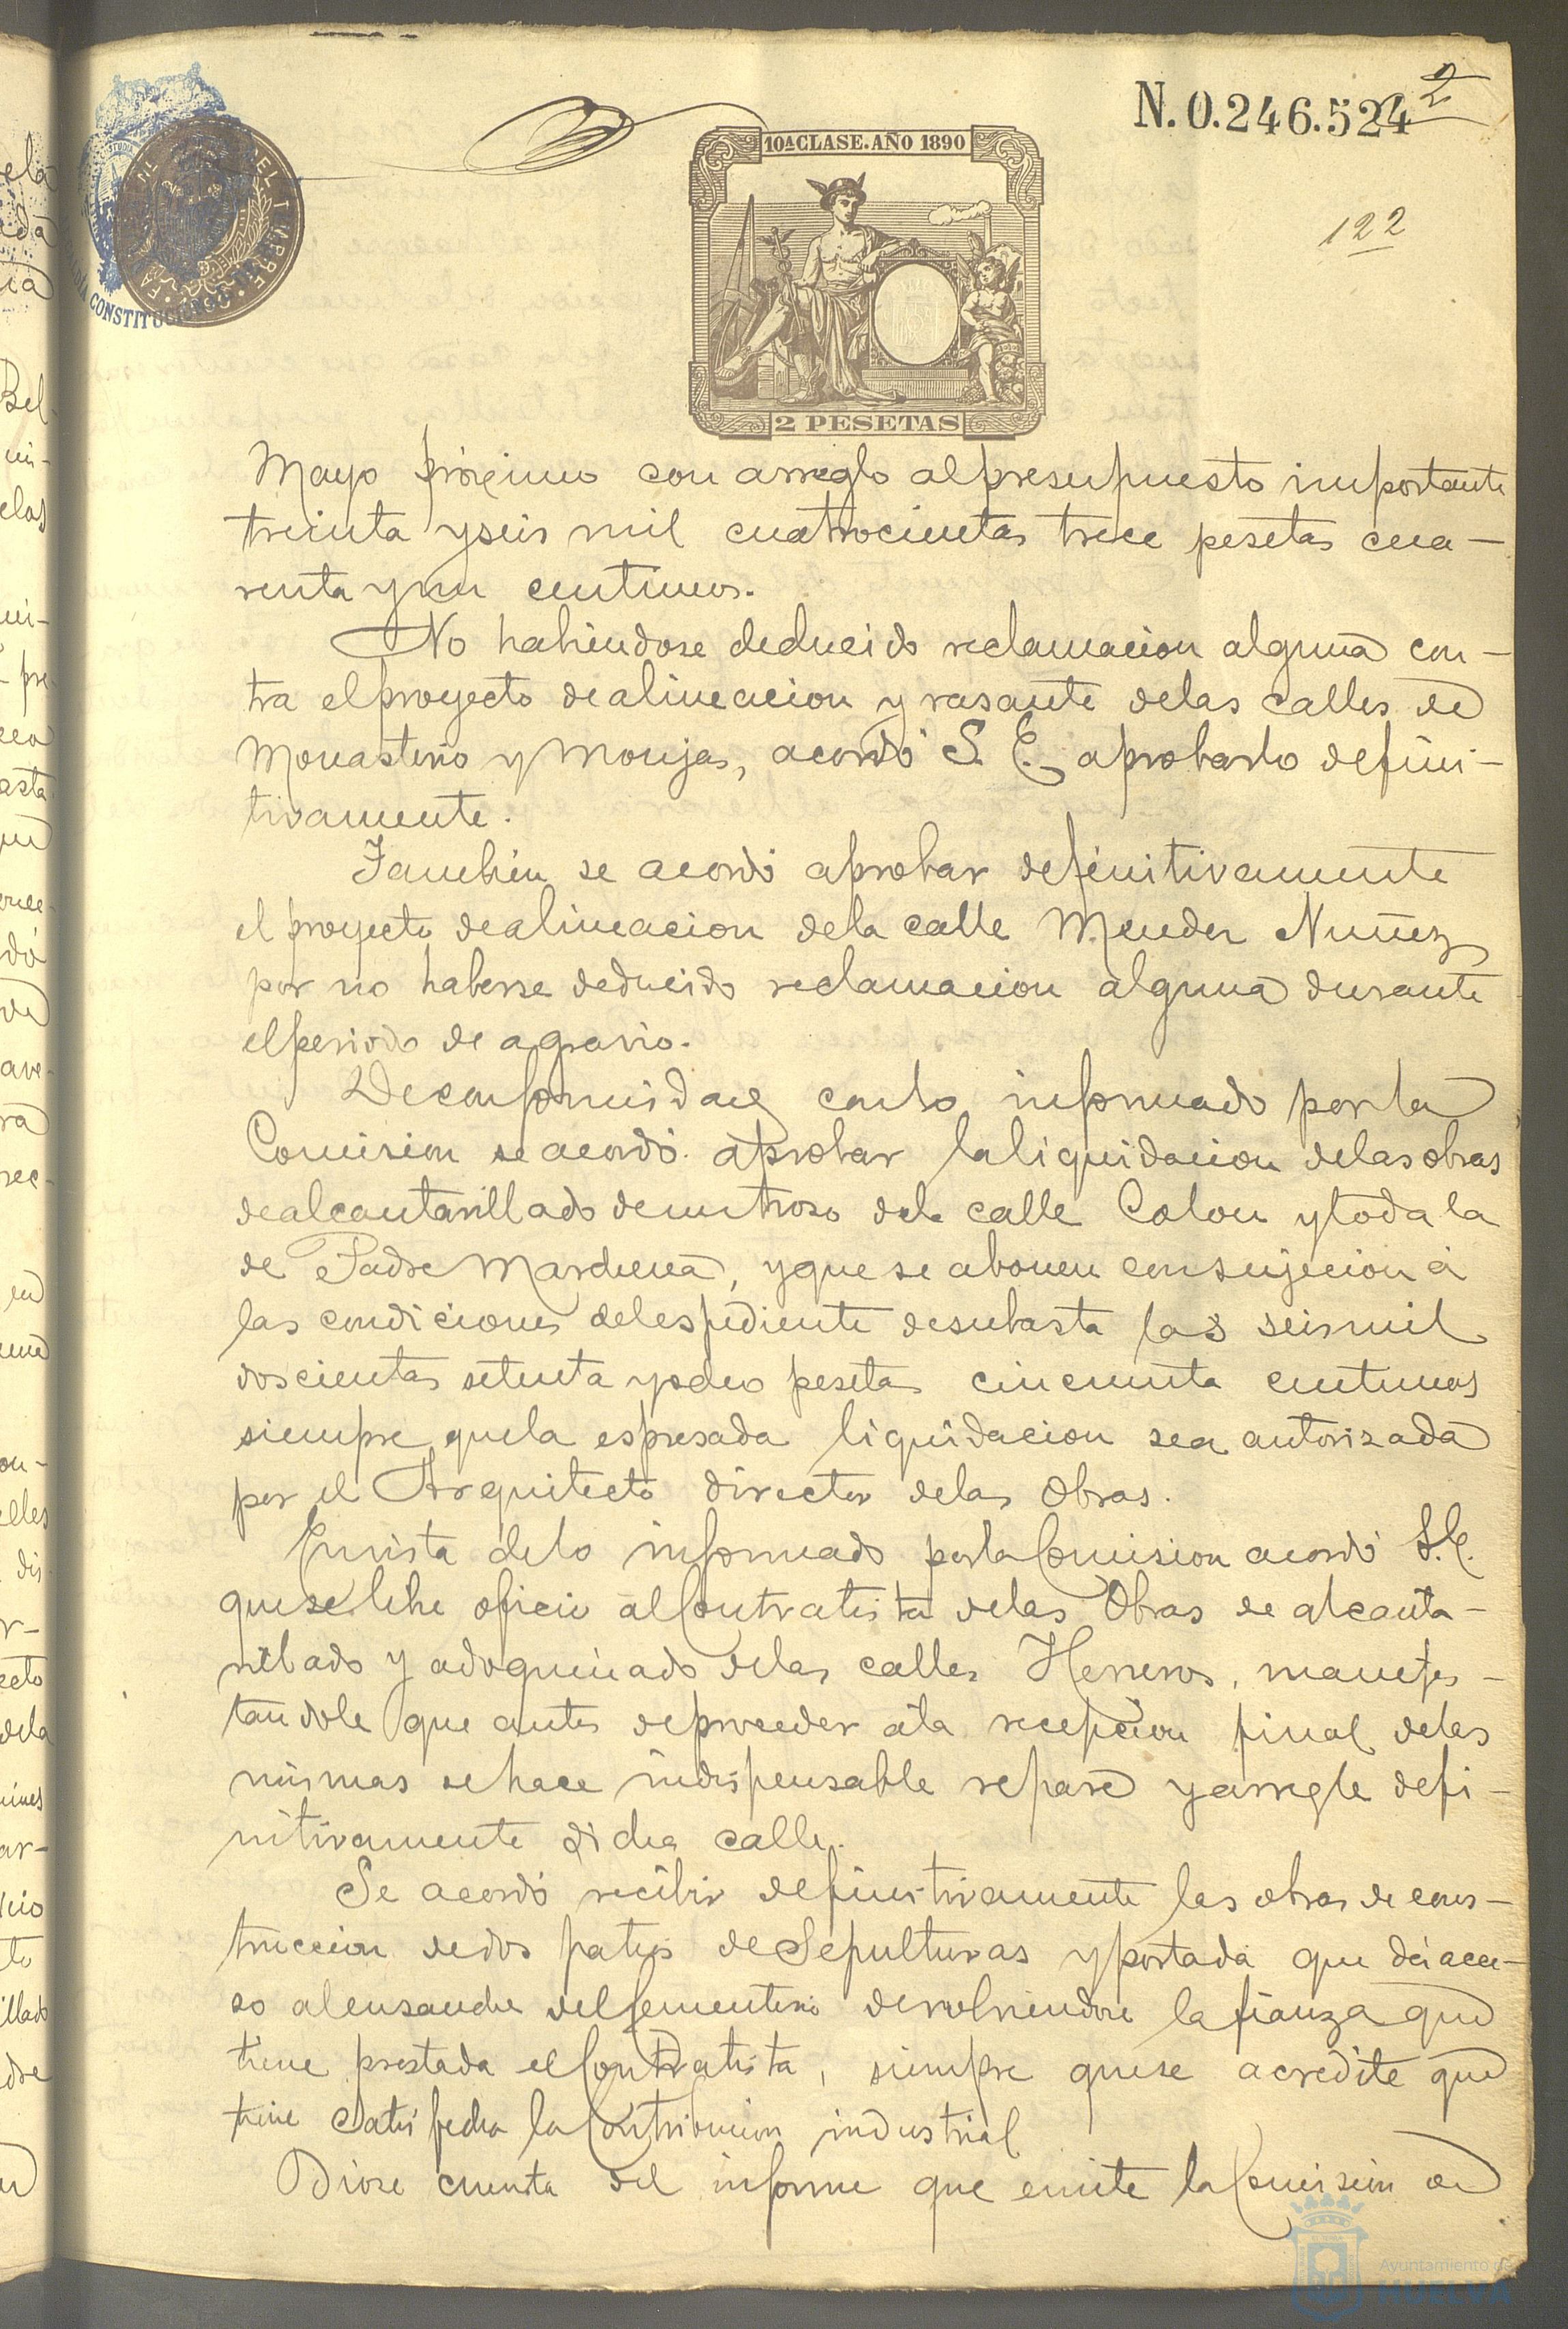 N. 0.246.524
2
10ª CLASE. AÑO 1890
122
CONSTITUCIONAL
2 PESETAS
Mayo próximo con arreglo al presupuesto importante
treinta y seis mil cuatrocientas trece pesetas cua-
renta y un centimos.
No habiendose deducido reclamacion alguna con-
tra el proyecto de alineacion y rasante de las calles de
Monasterio y Monjas, acordó S. E. aprobarlo defini-
tivamente.
Tambien se acordó aprobar definitivamente
el proyecto de alineacion de la calle Mendez Nuñez
por no haberse deducido reclamacion alguna durante
el periodo de agravio.
De conformidad con lo informado por la
Comision se acordó aprobar la liquidacion de las obras
de alcantarillado de un troso de la calle Colon y toda la
de Padre Marchena, y que se abonen con sujecion á
las condiciones del espediente de subasta las seis mil
doscientas setenta y ocho pesetas cincuenta centimos
siempre que la espresada liquidacion sea autorizada
por el Arquitecto director de las Obras.
En vista de lo informado por la Comision acordó S. E.
que se libre oficio al Contratista de las Obras de alcanta-
rillado y adoquinado de las calles Herreros, manifes-
tandole que antes de proceder á la recepcion final de las
mismas se hace indispensable repare y arregle defi-
nitivamente dicha calle.
Se acordó recibir definitivamente las obras de cons-
truccion de dos patios de Sepulturas y portada que dá acce-
so al ensanche del Cementerio devolviendose la fianza que
tiene prestada el Contratista, siempre que se acredite que
tiene satisfecha la Contribucion industrial
Diose cuenta del informe que emite la Comision de
Ayuntamiento de
HUELVA